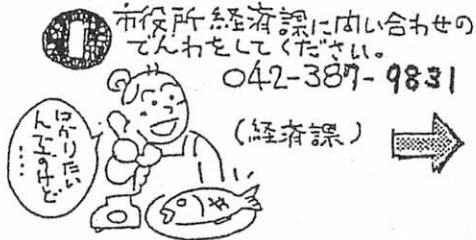 市役所経済課に問い合わせの
でんわをしてください。
042-387-9831
(経済課)
はかりたい
んですけど
....